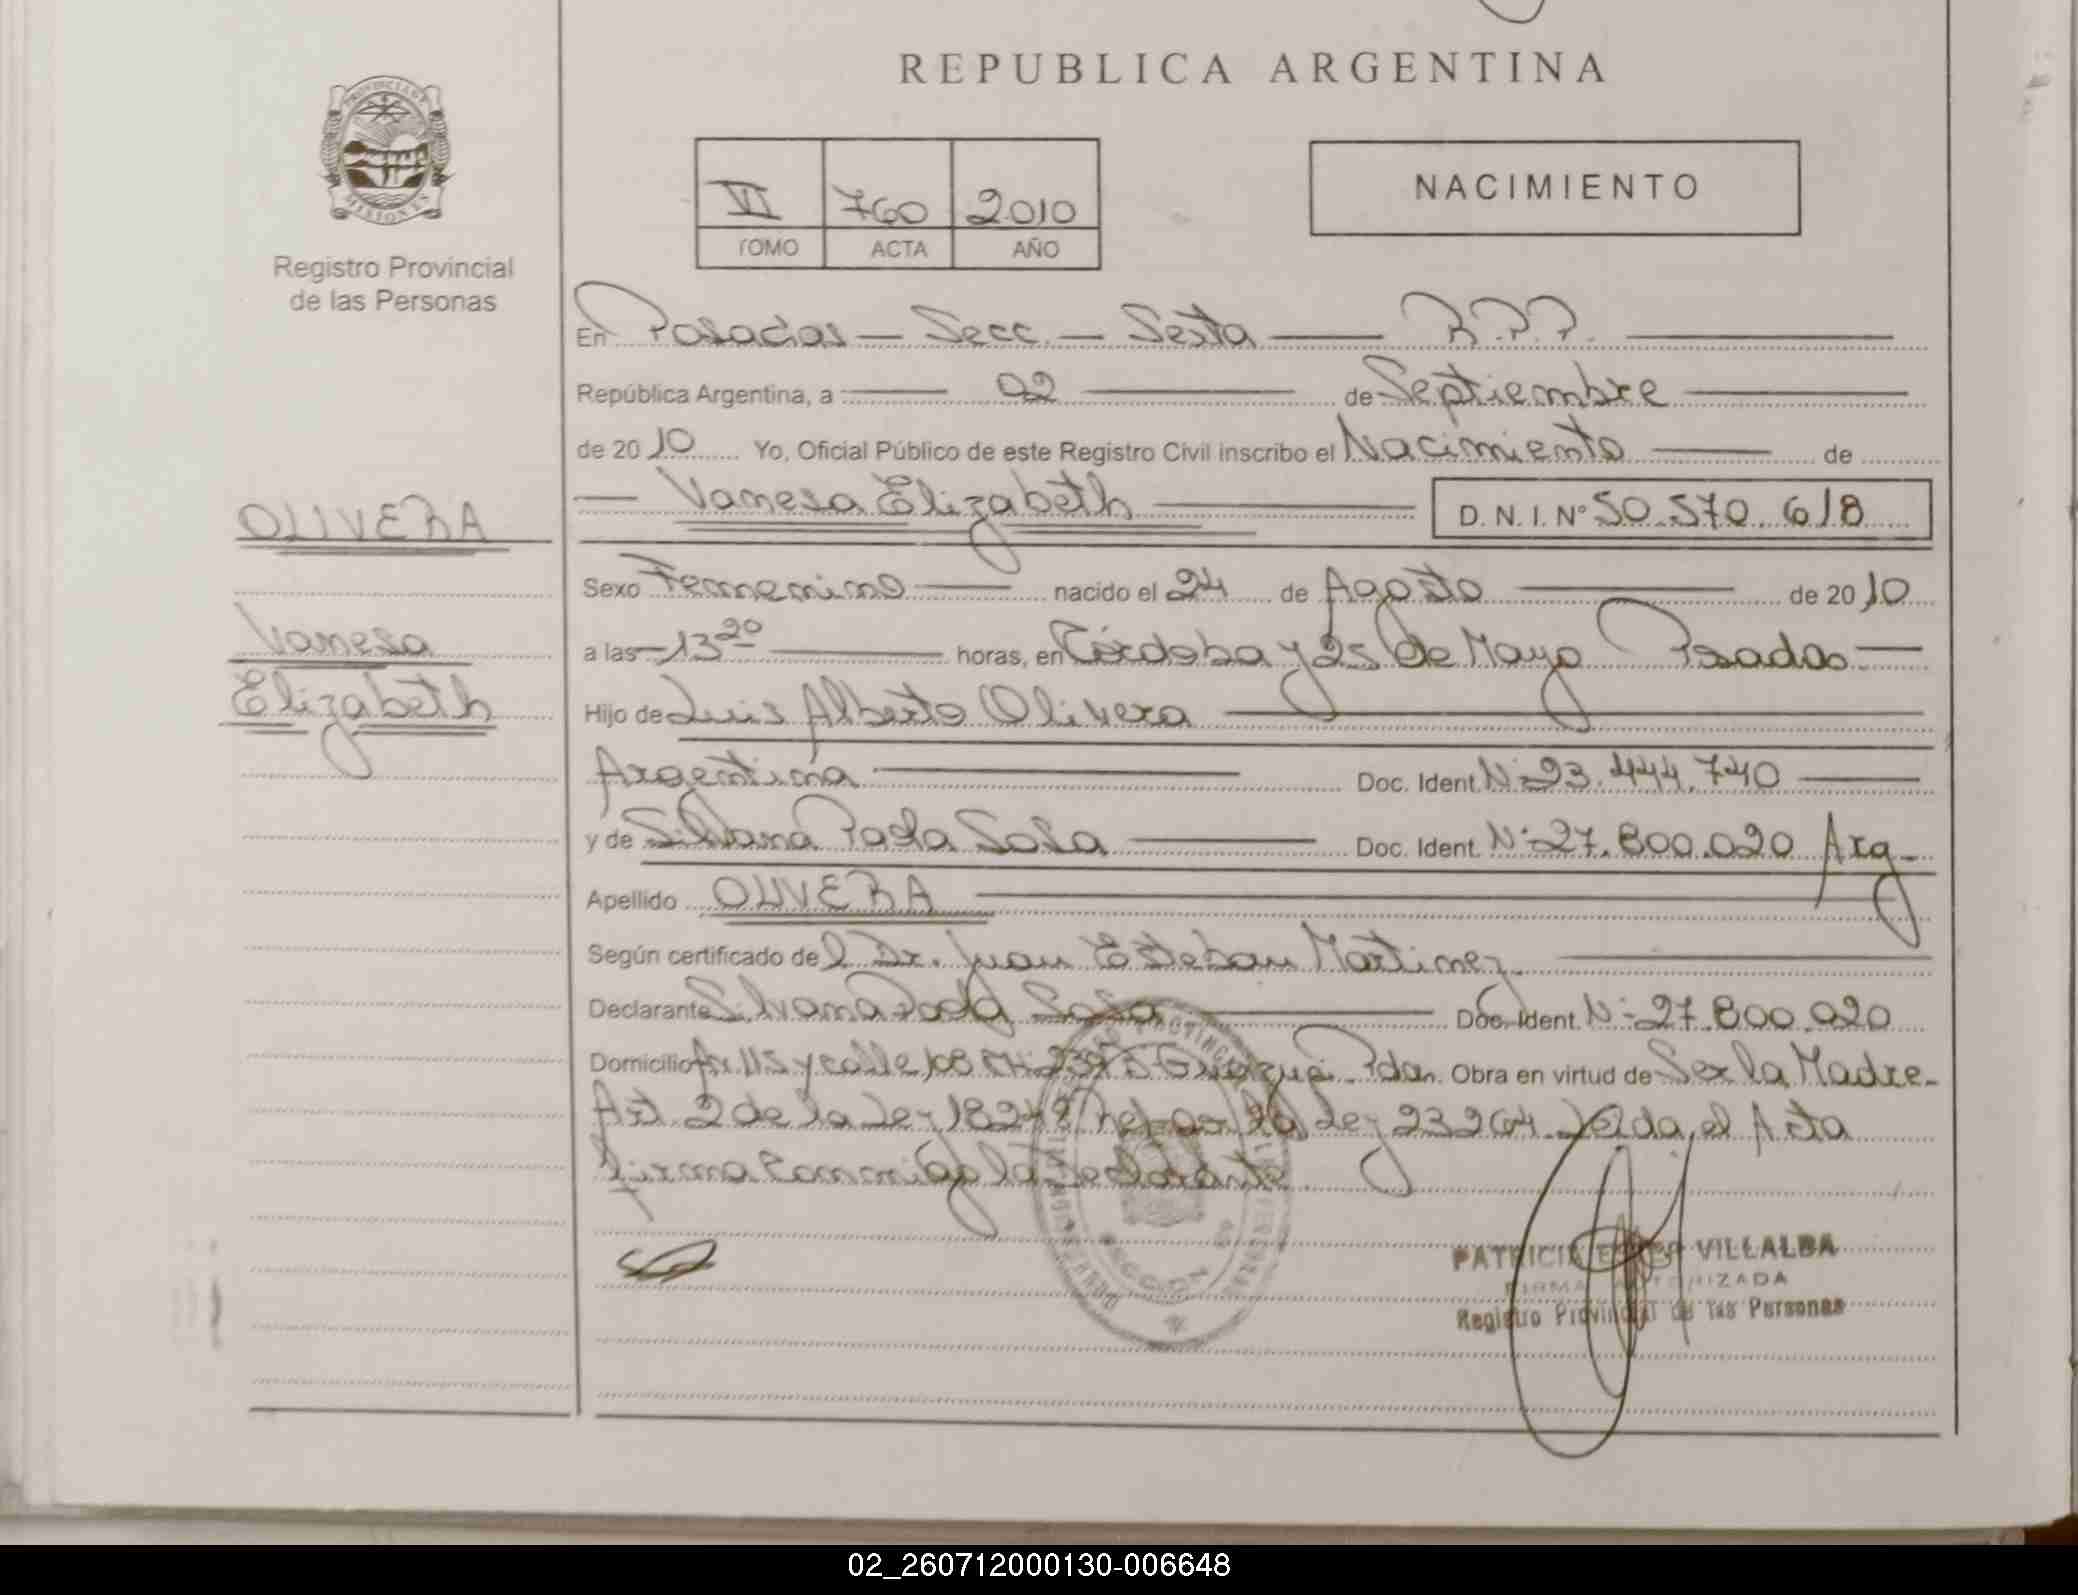 REPUBLICA ARGENTINA
PROVINCIA DE MISIONES
Registro Provincial
de las Personas
VI 760 2010
TOMO ACTA AÑO
NACIMIENTO
En Posadas — Secc. — Sexta — R.P.P. —
República Argentina, a — 02 — de Septiembre —
de 2010 Yo, Oficial Público de este Registro Civil inscribo el Nacimiento — de
— Vanesa Elizabeth — D. N. I. N° 50.570.618
OLIVERA
Vanesa
Elizabeth
Sexo Femenino — nacido el 24 de Agosto — de 2010
a las — 13 20 — horas, en Córdoba y 25 de Mayo Posadas —
Hijo de Luis Alberto Olivera —
Argentina — Doc. Ident. N° 23.444.740 —
y de Silvana Paola Sosa — Doc. Ident. N° 27.800.020 Arg_
Apellido OLIVERA —
Según certificado de l Dr. Juan Esteban Martinez. —
Declarante Silvana Paola Sosa — Doc. Ident. N° 27.800.020
Domicilio Av 115 y calle 108 Pdas. Obra en virtud de Ser la Madre_
Art 2 de la Ley 18248 Ley 23264 Leida el Acta
firma conmigo la declarante
SECCION
PATRICIA VILLALBA
FIRMA AUTORIZADA
Registro Provincial de las Personas
02_260712000130-006648